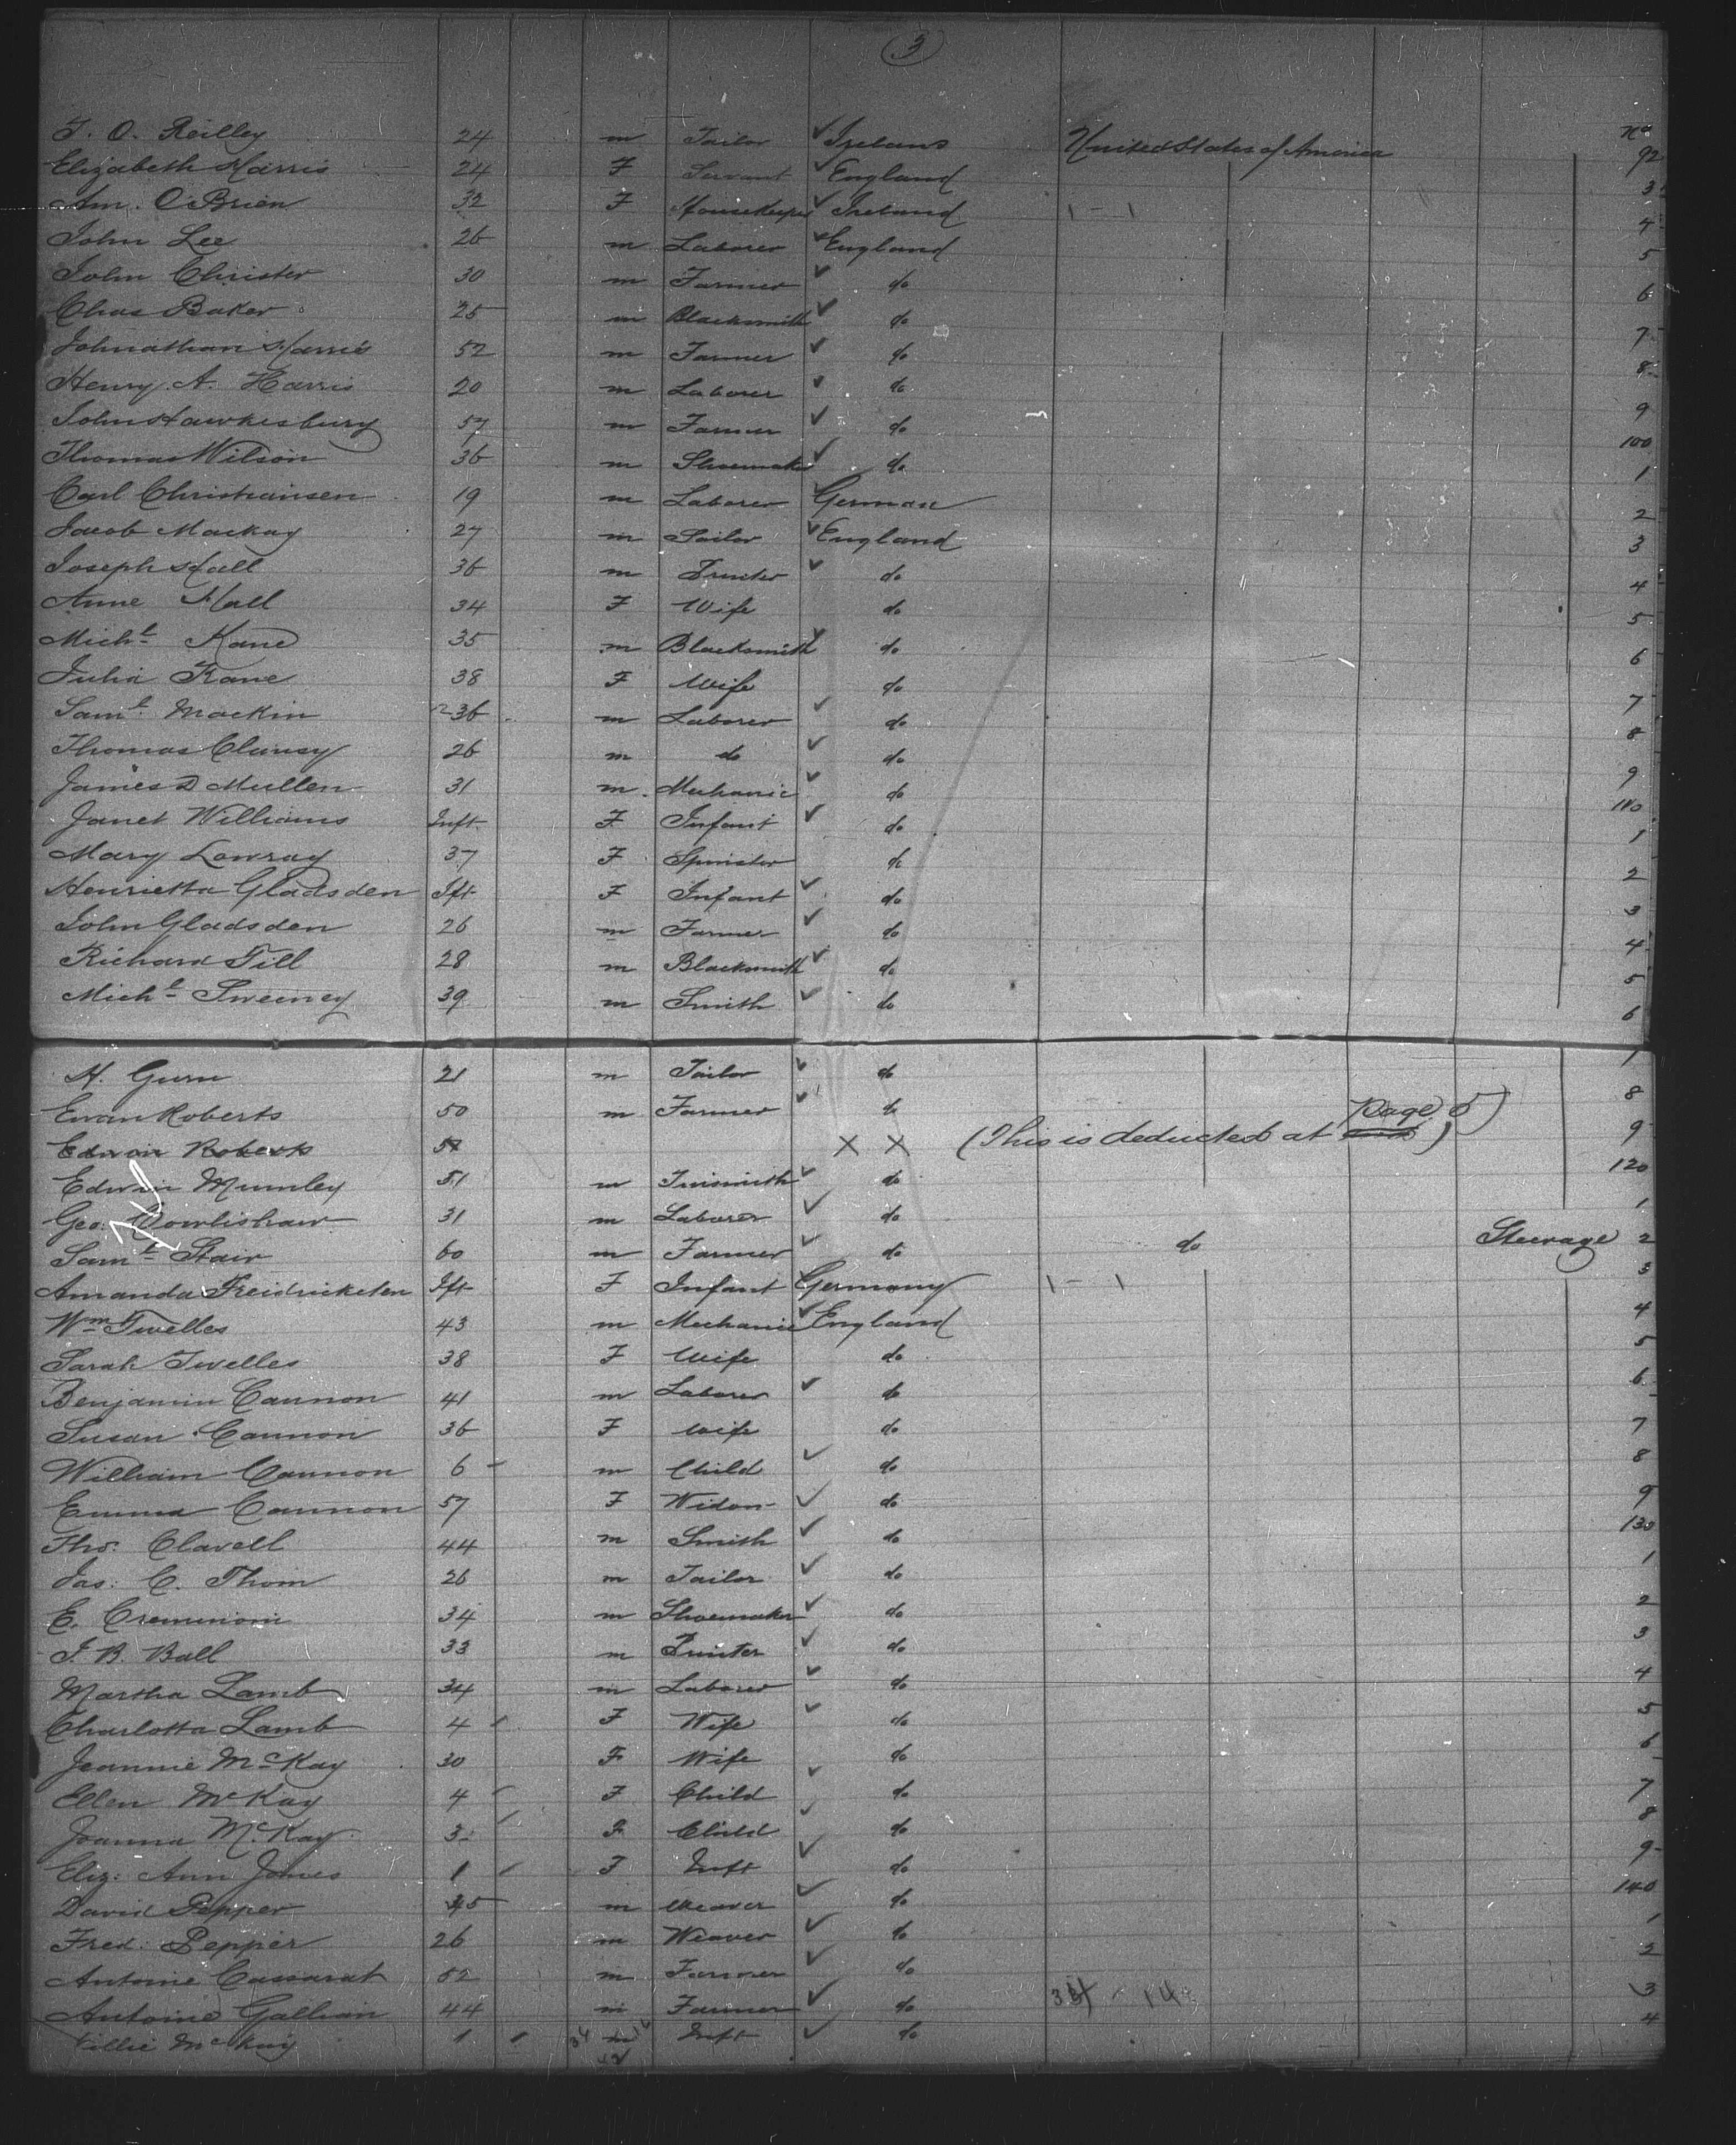 3
T. O. Reilley 24 m Tailor ✓ Ireland United States of America No 92
Elizabeth Harris 24 F Servant ✓ England 3
Am. O'Brien 32 F Housekeeper ✓ Ireland 1 - 1 4
John Lee 26 m Laborer ✓ England 5
John Christer 30 m Farmer ✓ do 6
Chas Baker 25 m Blacksmith ✓ do 7
Johnathan Harris 52 m Farmer ✓ do 8
Henry A. Harris 20 m Laborer ✓ do 9
John Hawkesbury 57 m Farmer ✓ do 100
Thomas Wilson 36 m Shoemaker ✓ do 1
Carl Christiansen 19 m Laborer German 2
Jacob Mackay 27 m Sailor ✓ England 3
Joseph Hall 36 m Printer ✓ do 4
Anne Hall 34 F Wife do 5
Michl Kane 35 m Blacksmith ✓ do 6
Julia Kane 38 F Wife do 7
Saml Mackin 36 m Laborer ✓ do 8
Thomas Clunsy 26 m do ✓ do 9
James D Mullen 31 m Mechanic ✓ do 110
Janet Williams Inft F Infant ✓ do 1
Mary Lowray 37 F Spinster do 2
Henrietta Gladsden Ift F Infant ✓ do 3
John Gladsden 26 m Farmer ✓ do 4
Richard Till 28 m Blacksmith ✓ do 5
Michl Sweeney 39 m Smith ✓ do 6
H. Gurn 21 m Tailor ✓ do 7
Evan Roberts 50 m Farmer ✓ do 8
Edwin Roberts X X (This is deducted at page 5) 9
Edwin Mumley 51 m Tinsmith ✓ do 120
Geo. Cowlishaw 31 m Laborer ✓ do 1
Saml Stair 60 m Farmer ✓ do do Steerage 2
Amanda Freidricketen Ift F Infant Germany 1 - 1 3
Wm Twelles 43 m Mechanic ✓ England 4
Sarah Twelles 38 F Wife do 5
Benjamin Cannon 41 m Laborer ✓ do 6
Susan Cannon 36 F Wife do 7
William Cannon 6 m Child ✓ do 8
Emma Cannon 57 F Widow ✓ do 9
Thos. Clavell 44 m Smith ✓ do 130
Jas: C. Thom 26 m Tailor ✓ do 1
E. Cremmoni 34 m Shoemaker ✓ do 2
J. B. Ball 33 m Printer ✓ do 3
Martha Lamb 34 m Laborer ✓ do 4
Charlotta Lamb 4 F Wife ✓ do 5
Jeannie McKay 30 F Wife do 6
Ellen McKay 4 F Child ✓ do 7
Joanna McKay 3 F Child ✓ do 8
Eliz: Ann Jones 1 F Inft ✓ do 9
David Pepper 45 m Weaver ✓ do 140
Fred: Pepper 26 m Weaver ✓ do 1
Antoine Cassarat 52 m Farmer ✓ do 2
Antoine Gallian 44 m Farmer ✓ do 34 - 14 3
Willie McKay 1 m Inft ✓ do 4